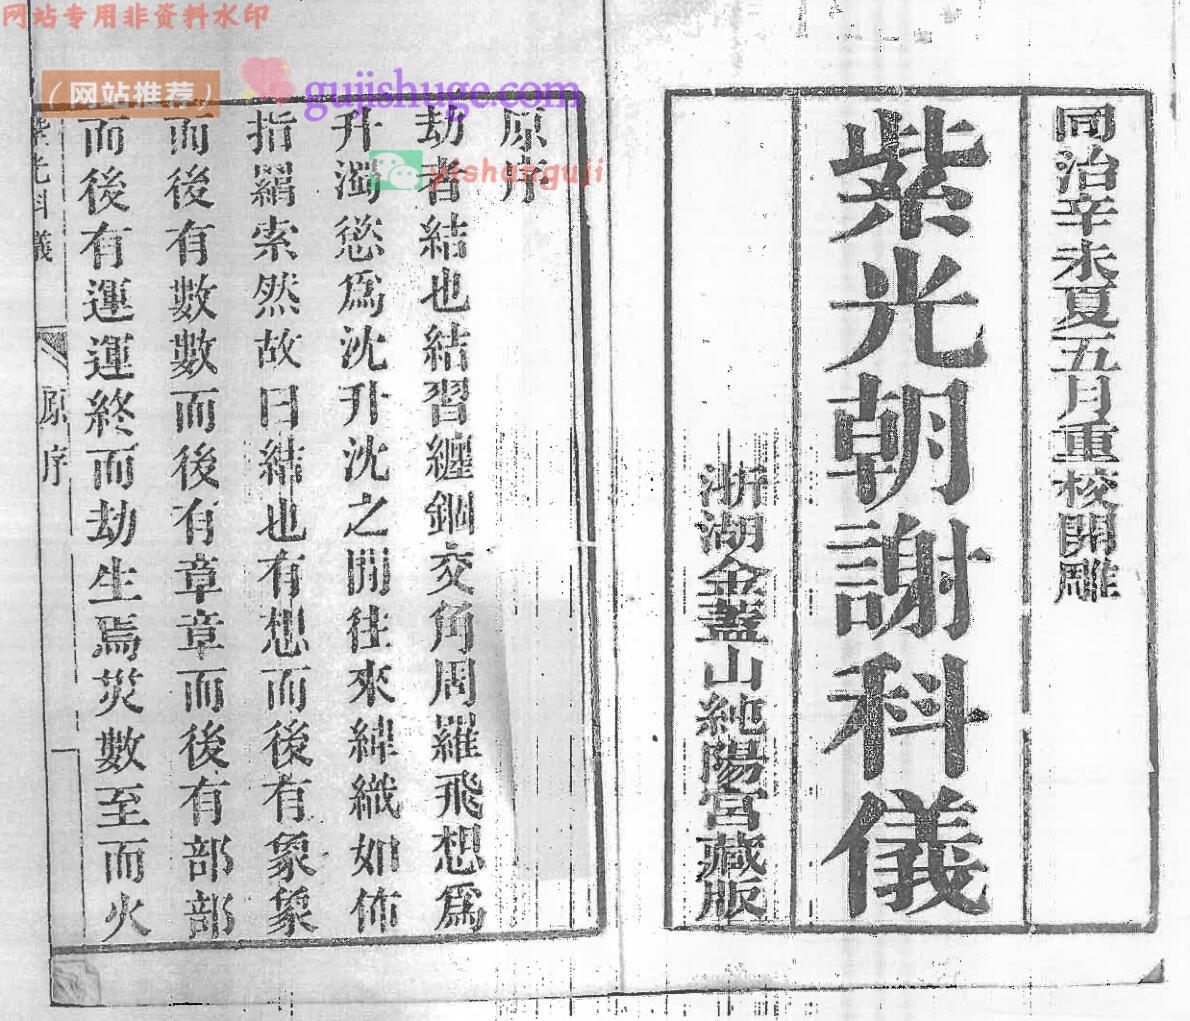 网站专用非资料水印
（网站推荐）
gujishuge.com
yishanguji
同治辛未夏五月重校開雕
紫光朝謝科儀
浙湖金蓋山純陽宮藏版
原序
劫者結也結習纏錮交角周羅飛想爲
升濁慾爲沈升沈之閒往來緯織如佈
指羂索然故曰結也有想而後有象象
而後有數數而後有章章而後有部部
而後有運運終而劫生焉災數至而火
紫光科儀
原序
一